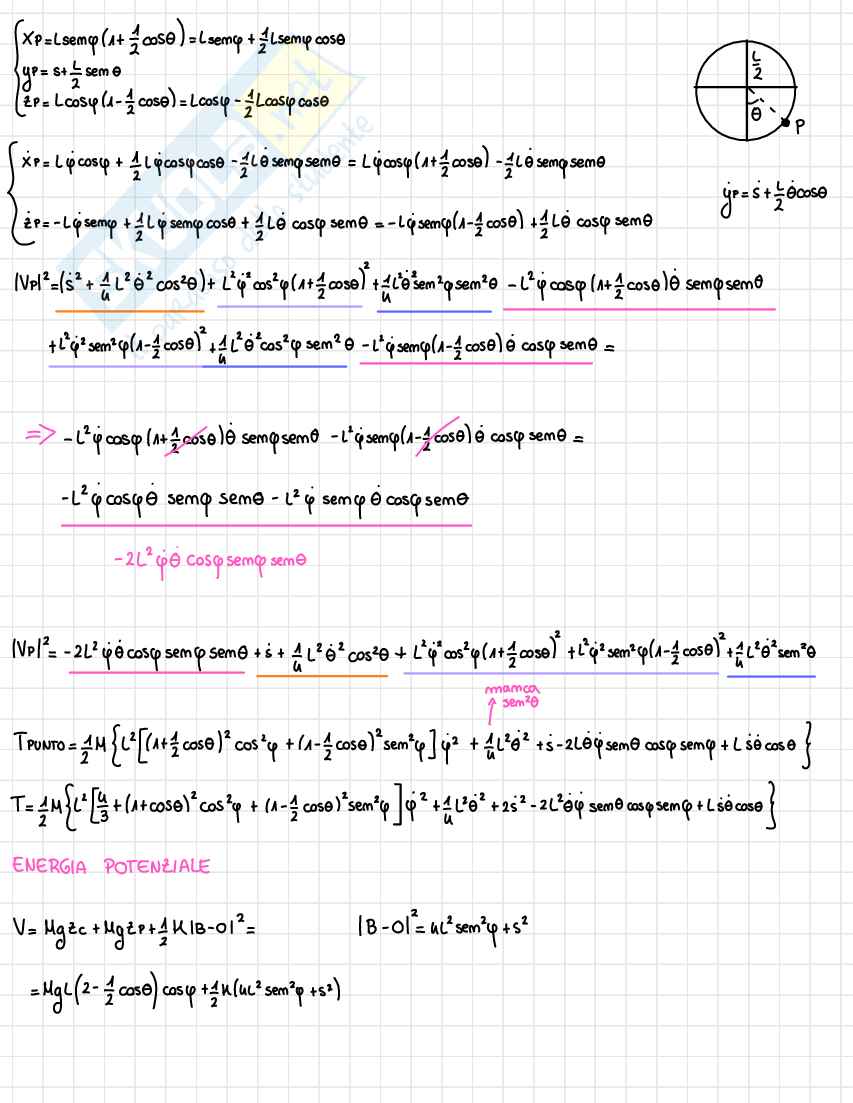 xP = Lsenφ(1+1/2 cosθ) = Lsenφ + 1/2 Lsenφ cosθ
yP = s + L/2 senθ
zP = Lcosφ(1-1/2 cosθ) = Lcosφ - 1/2 Lcosφ cosθ
L/2
θ
P
ẋP = Lφ̇cosφ + 1/2 Lφ̇cosφcosθ - 1/2 Lθ̇senφsenθ = Lφ̇cosφ(1+1/2 cosθ) - 1/2 Lθ̇senφsenθ
ẏP = ṡ + L/2 θ̇cosθ
żP = -Lφ̇senφ + 1/2 Lφ̇senφcosθ + 1/2 Lθ̇ cosφ senθ = -Lφ̇senφ(1-1/2 cosθ) + 1/2 Lθ̇ cosφ senθ
|VP|² = (ṡ² + 1/4 L²θ̇² cos²θ) + L²φ̇²cos²φ(1+1/2 cosθ)² + 1/4 L²θ̇²sen²φsen²θ - L²φ̇cosφ(1+1/2 cosθ)θ̇ senφsenθ
+L²φ̇²sen²φ(1-1/2 cosθ)² + 1/4 L²θ̇²cos²φ sen²θ - L²φ̇senφ(1-1/2 cosθ)θ̇ cosφsenθ =
=> -L²φ̇cosφ(1+1/2 cosθ)θ̇ senφsenθ - L²φ̇senφ(1-1/2 cosθ)θ̇ cosφsenθ =
-L²φ̇cosφθ̇ senφ senθ - L²φ̇ senφ θ̇cosφsenθ
-2L²φ̇θ̇ cosφsenφsenθ
|VP|² = -2L²φ̇θ̇cosφsenφsenθ + ṡ + 1/4 L²θ̇²cos²θ + L²φ̇²cos²φ(1+1/2 cosθ)² + L²φ̇²sen²φ(1-1/2 cosθ)² + 1/4 L²θ̇²sen²θ
manca
↑ sen²θ
TPUNTO = 1/2 M{L²[(1+1/2 cosθ)² cos²φ + (1-1/2 cosθ)²sen²φ]φ̇² + 1/4 L²θ̇² + ṡ - 2Lθ̇φ̇senθ cosφsenφ + Lṡθ̇cosθ}
T = 1/2 M{L²[4/3 + (1+cosθ)²cos²φ + (1-1/2 cosθ)²sen²φ]φ̇² + 1/4 L²θ̇² + 2ṡ² - 2L²θ̇φ̇ senθcosφsenφ + Lṡθ̇cosθ}
ENERGIA POTENZIALE
V = MgzC + MgzP + 1/2 K|B-O|² =
|B-O|² = 4L²sen²φ + s²
= MgL(2-1/2 cosθ)cosφ + 1/2 K(4L²sen²φ + s²)